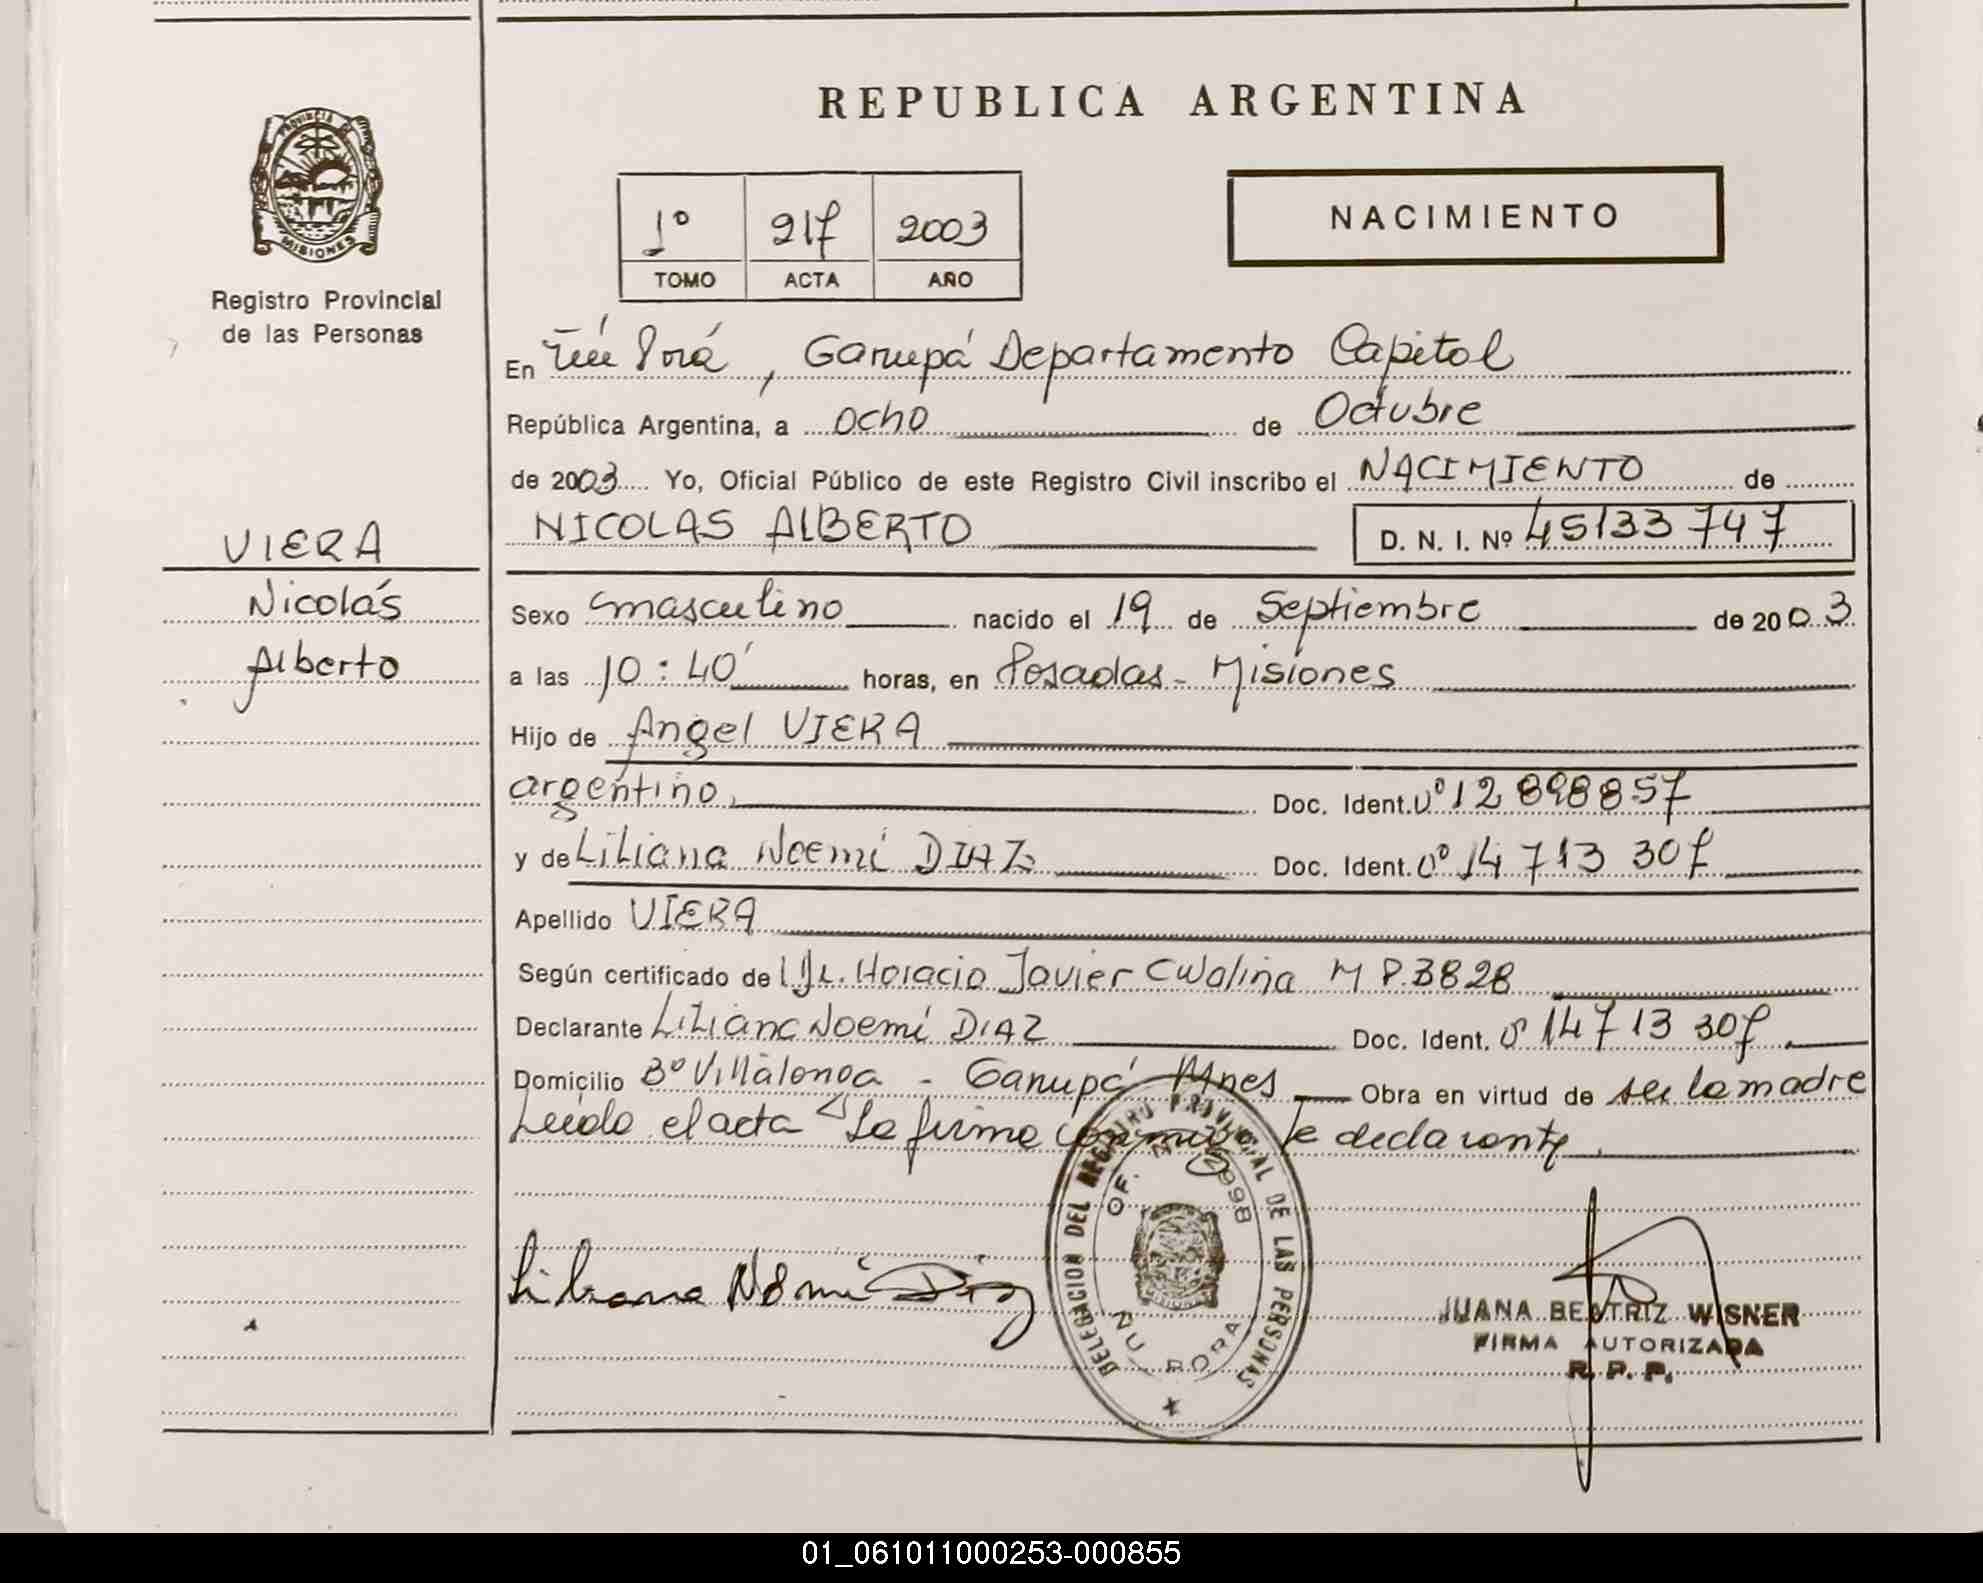 REPUBLICA ARGENTINA
PROVINCIA DE
MISIONES
Registro Provincial
de las Personas
1º 217 2003
TOMO ACTA AÑO
NACIMIENTO
En Ñú Porá, Garupá Departamento Capital
República Argentina, a ocho de Octubre
de 2003 Yo, Oficial Público de este Registro Civil inscribo el NACIMIENTO de
NICOLAS ALBERTO D. N. I. Nº 45133 747
VIERA
Nicolás
Alberto
Sexo masculino nacido el 19 de Septiembre de 2003
a las 10:40' horas, en Posadas - Misiones
Hijo de Angel VIERA
argentino, Doc. Ident. nº 12 898857
y de Liliana Noemí DIAZ Doc. Ident. nº 14 713 307
Apellido VIERA
Según certificado de Dr. Horacio Javier Cwalina M P. 3828
Declarante Liliana Noemí DIAZ Doc. Ident. nº 14713 307
Domicilio Bº Villalonga - Garupá Mnes Obra en virtud de ser la madre
Leída el acta La firma conmigo la declarante
Liliana Noemi Diaz
DELEGACION DEL REGISTRO PROVINCIAL DE LAS PERSONAS
OF. 2998
ÑU PORA
JUANA BEATRIZ WISNER
FIRMA AUTORIZADA
R. P. P.
01_061011000253-000855